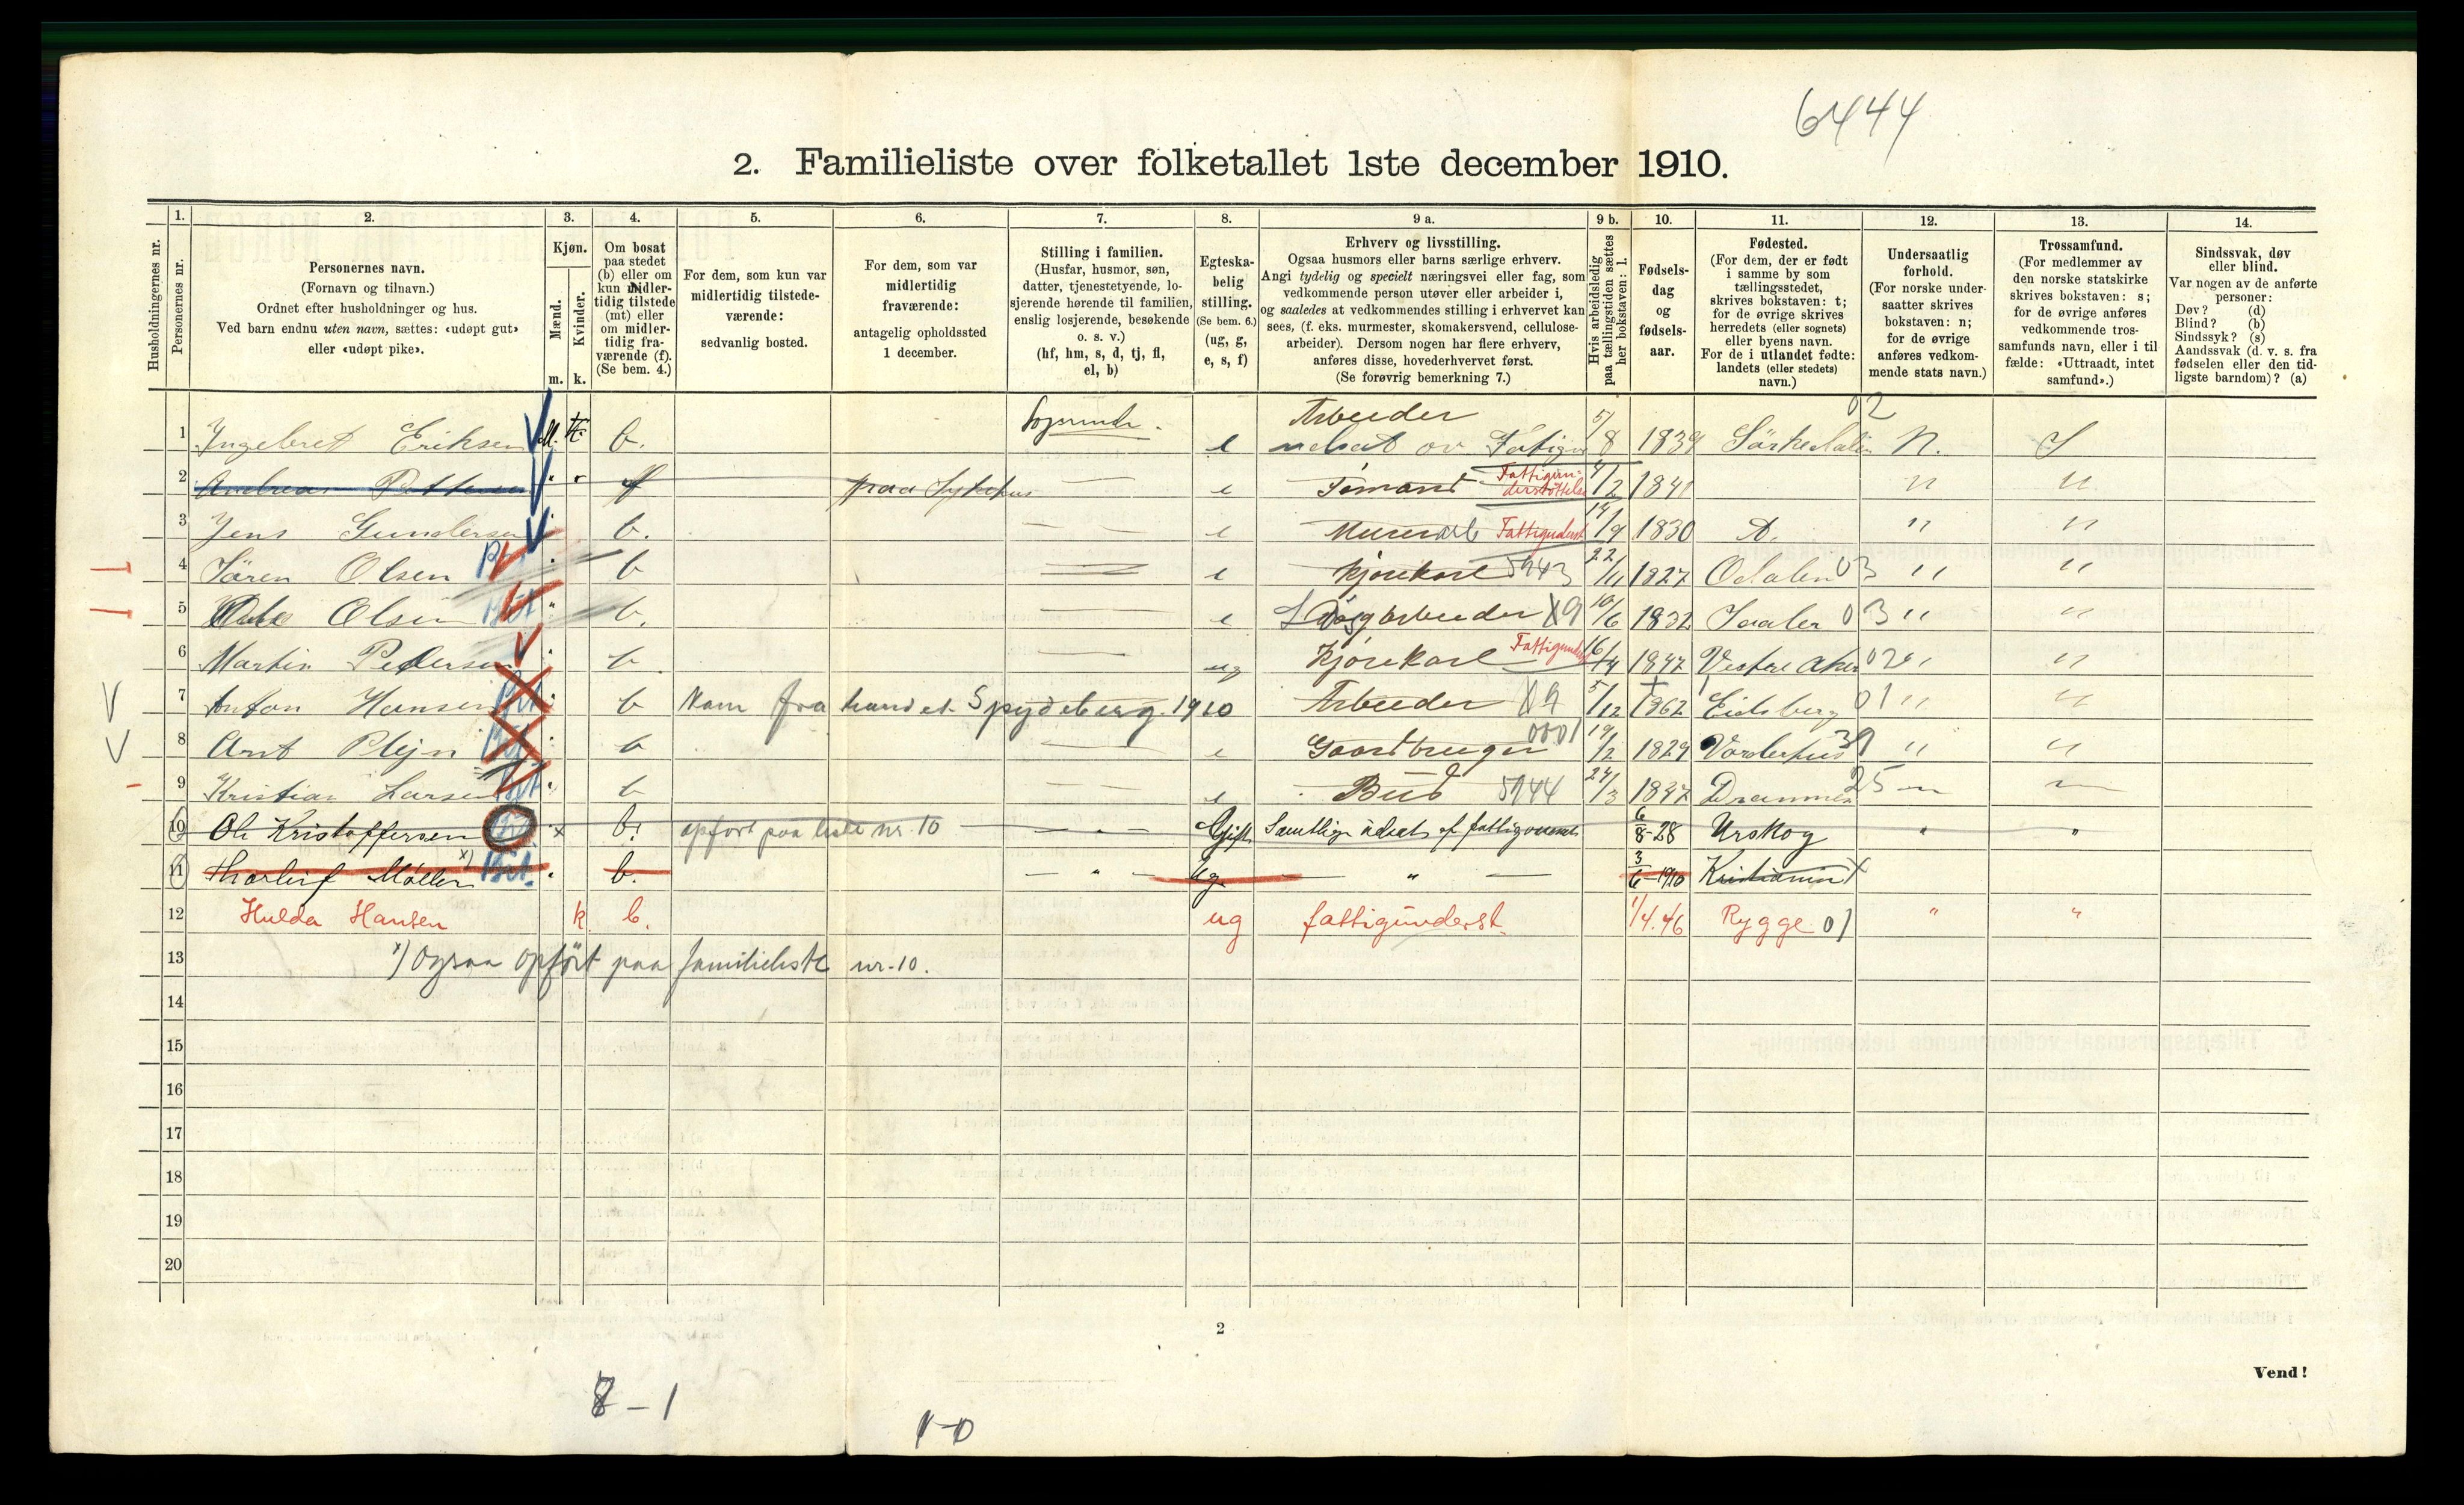 6444
2. Familieliste over folketallet 1ste december 1910.
Husholdningernes nr.
1. Personernes nr.
2. Personernes navn. (Fornavn og tilnavn.) Ordnet efter husholdninger og hus. Ved barn endnu uten navn, sættes: «udøpt gut» eller «udøpt pike».
3. Kjøn. Mænd. m. Kvinder. k.
4. Om bosat paa stedet (b) eller om kun midlertidig tilstede (mt) eller om midlertidig fraværende (f). (Se bem. 4.)
5. For dem, som kun var midlertidig tilstedeværende: sedvanlig bosted.
6. For dem, som var midlertidig fraværende: antagelig opholdssted 1 december.
7. Stilling i familien. (Husfar, husmor, søn, datter, tjenestetyende, losjerende hørende til familien, enslig losjerende, besøkende o. s. v.) (hf, hm, s, d, tj, fl, el, b)
8. Egteskabelig stilling. (Se bem. 6.) (ug, g, e, s, f)
9 a. Erhverv og livsstilling. Ogsaa husmors eller barns særlige erhverv. Angi tydelig og specielt næringsvei eller fag, som vedkommende person utøver eller arbeider i, og saaledes at vedkommendes stilling i erhvervet kan sees, (f. eks. murmester, skomakersvend, cellulosearbeider). Dersom nogen har flere erhverv, anføres disse, hovederhvervet først. (Se forøvrig bemerkning 7.)
9 b. Hvis arbeidsledig paa tællingstiden sættes her bokstaven: l.
10. Fødselsdag og fødselsaar.
11. Fødested. (For dem, der er født i samme by som tællingsstedet, skrives bokstaven: t; for de øvrige skrives herredets (eller sognets) eller byens navn. For de i utlandet fødte: landets (eller stedets) navn.)
12. Undersaatlig forhold. (For norske undersaatter skrives bokstaven: n; for de øvrige anføres vedkommende stats navn.)
13. Trossamfund. (For medlemmer av den norske statskirke skrives bokstaven: s; for de øvrige anføres vedkommende trossamfunds navn, eller i tilfælde: «Uttraadt, intet samfund».)
14. Sindssvak, døv eller blind. Var nogen av de anførte personer: Døv? (d) Blind? (b) Sindssyk? (s) Aandssvak (d. v. s. fra fødselen eller den tidligste barndom)? (a)
1 Ingebret Eriksen M. b. e Arbeider 5/8 1839 Sörkedalen 02 N. S
2 Andreas f paa Sykehus e Sömand Fattigunderstøttelse 4/2 1841 " "
3 Jens Gundersen b. e Fattigunderst 14/9 1830 " "
4 Sören Olsen b e Kjörekarl 5943 22/11 1827 Odalen 03 " "
5 Olsen b. e 10/6 1832 03 " "
6 Martin Pedersen b. ug Kjörekarl Fattigunderst 16/4 1847 Vestre Aker 02 " "
7 Anton Hansen b Kom fra Spydeberg. 1910 Arbeider X9 5/12 1862 Eidsberg 01 " "
8 Arnt Plejn b e Gaardbruger 0001 19/2 1829 " "
9 Kristian Larsen b e Bud 5944 24/3 1837 Drammen 25
10 Ole Kristoffersen x b. opført paa liste nr. 10 — " — Gift Samtlige 6/8-28 Urskog " "
11 Thorleif Møller x) b. — " — Ug — " — 3/6-1910 Kristiania
12 Hulda Hansen k b. ug fattigunderst. 1/4.46 Rygge 01 " "
13 x) Ogsaa opført paa familieliste nr. 10.
14
15
16
17
18
19
20
2
Vend!
8-1
1-0